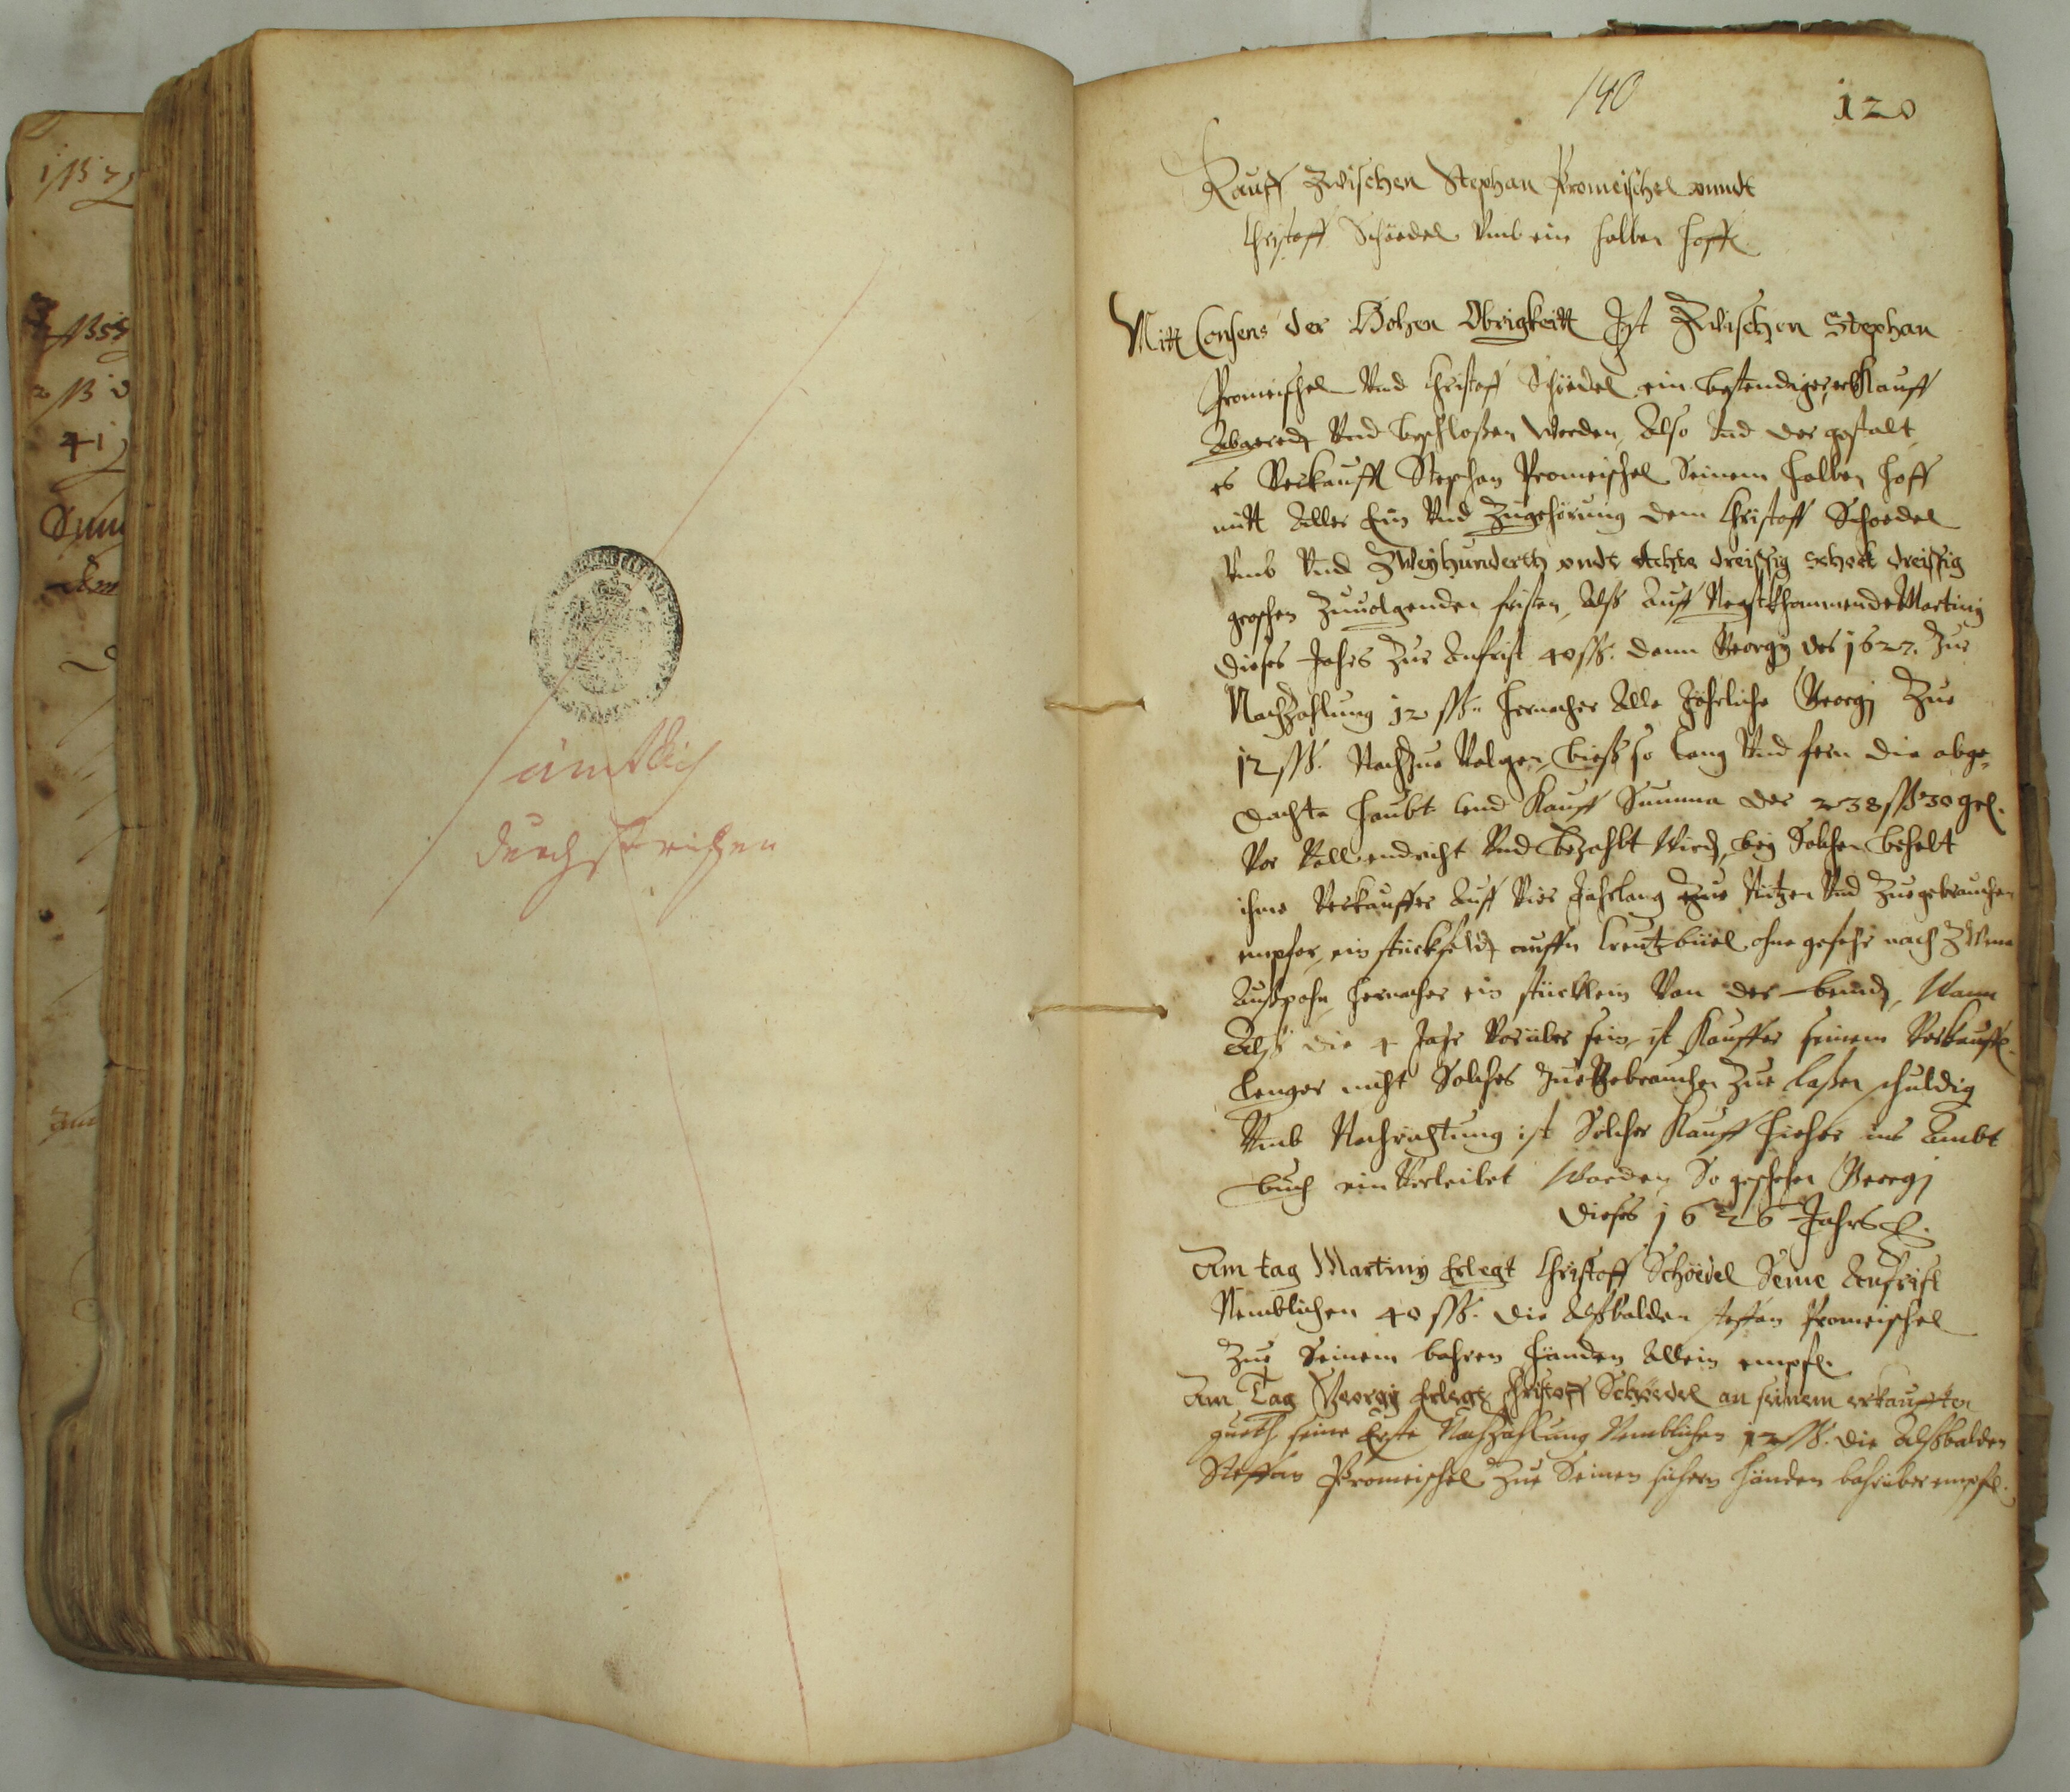 1 ßß 25
ßß 55
2 ßß
41
Sum
ämtlich
durchstrichen
140
120
Kauff zwischen Stephan Promeischel vnndt
Christoff Schöedel Vmb ein halben Hoff
Mitt Consens der Hohen Obrigkeitt Ist Zwischen Stephan
Promeischel Vnd Christoff Schöedel ein bestendiger erbKauff
Abgeredt Vnd beschloßen Worden, Also Vnd der gestalt,
es Verkaufft Stephan Promeischel Seinem halben Hoff
mitt Aller Ein Vnd Zugehörung dem Christoff Schoedel
Vmb Vnd Zweyhunderth vndt Achte dreissig schock dreissig
groschen Zuuolgenden fristen, Alß Auff Negstkhommende Martiny
dieses Jahrs Zur Anfrist 40 ßß. dann Georgy des 1627. Zur
NachZahlung 12 ßß. Hernacher Alle Jährliche Georgj Zue
12 ßß. Nachzue Volgen, bieß so lang Vnd fern die abge-
dachte Haubt Kauff Summa der 238 ßß 30 gl.
Vor Voll endricht Vnd Bezahlt Wird, bey Solchen behelt
ihme Verkauffer Auff Vier Jahrlang Zue Nützen Vnd Zuegebrauchen
ein stückfeldt auffn Creutzbüel ohne gefehr nach
hernacher ein stücklein Von der beünd, Wann
Alß die 4 Jahr Vorüber sein, ist Kauffer seinem Verkauff.
lenger nicht Solches ZueGebrauchen Zue laßen schuldig
Vmb Nachrichtung ist Solcher Kauff hieher ins Ambt
buch ein Verleibet Worden, So geschehen Georgj
dieses 1626 Jahrs.
Am tag Martiny Erlegt Christoff Schöedel Seine Anfrist
Nemblichen 40 ßß. die Alßbalden steffan Promeischel
Zue Seinem bahren Händen Allein empf.
Am Tag Georgy Erlegt Christoff Schöedel an seinem erkaufften
gueth seine Erste NachZahlung Nemblichen 12 ßß. die Alßbalden
Steffan Promeischel Zue Seinen sichern Händen empf.